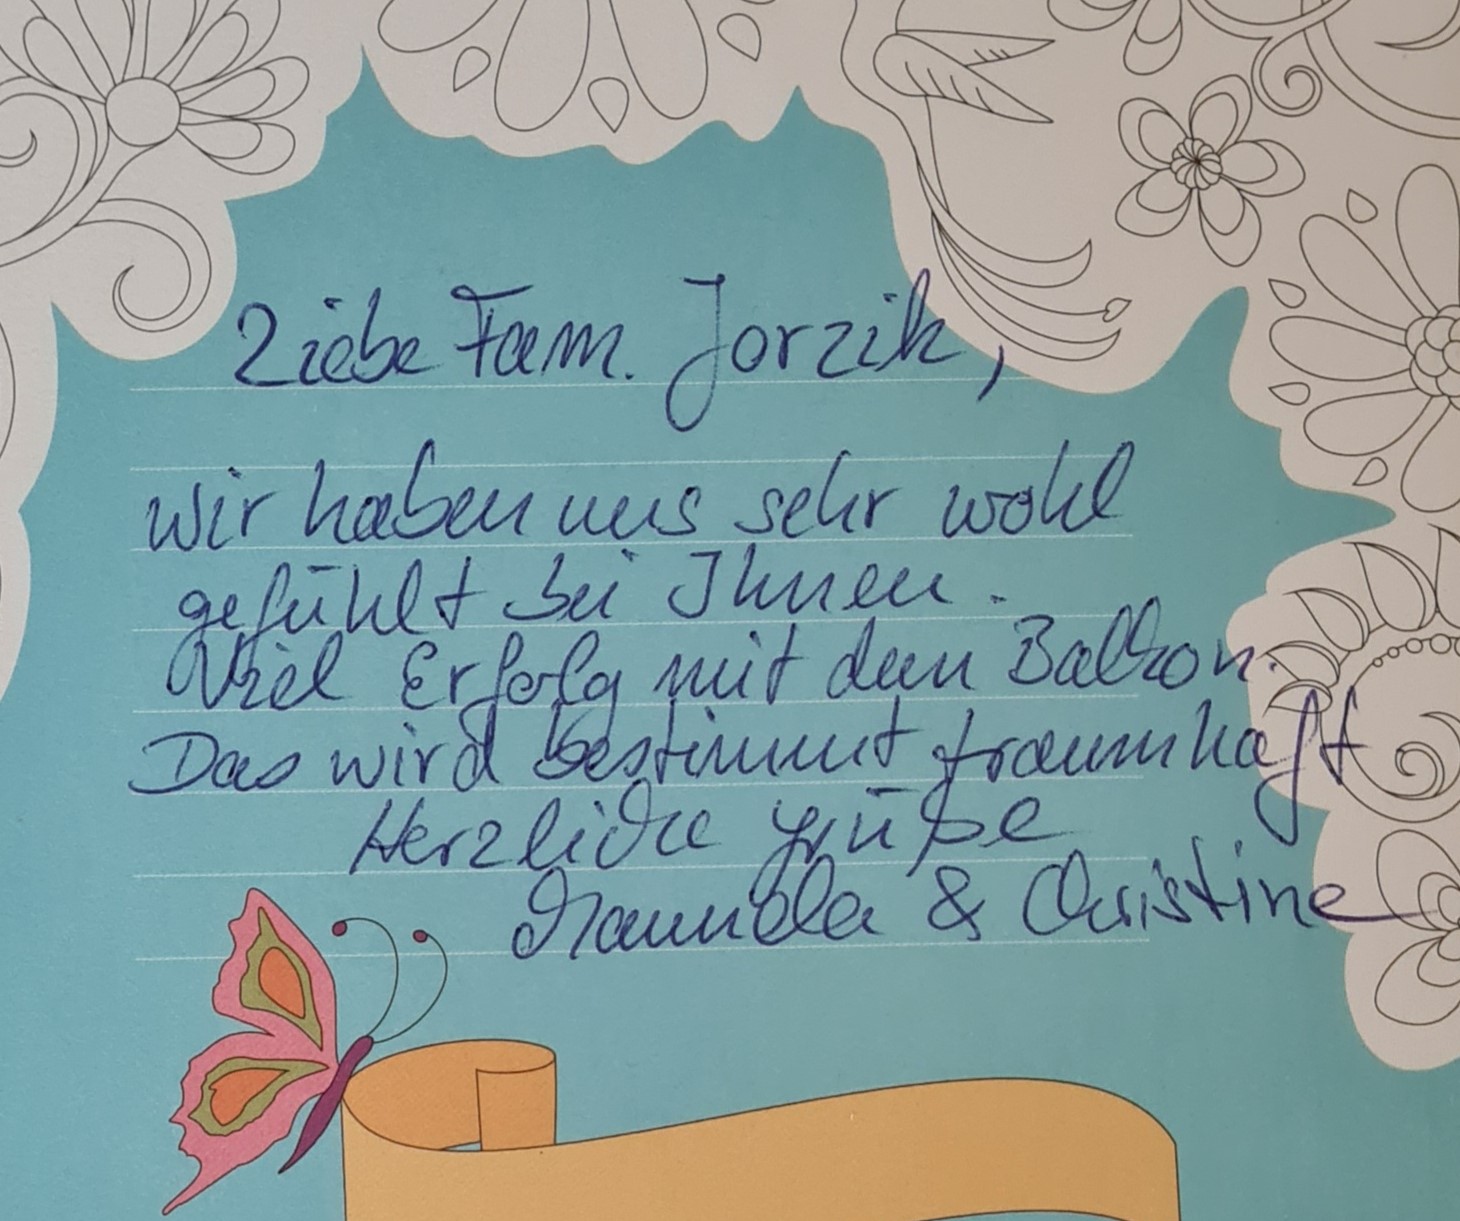 Liebe Fam. Jorzik,
wir haben uns sehr wohl
gefühlt bei Ihnen.
Viel Erfolg mit dem Balkon.
Das wird bestimmt traumhaft
Herzliche Grüße
& Christine